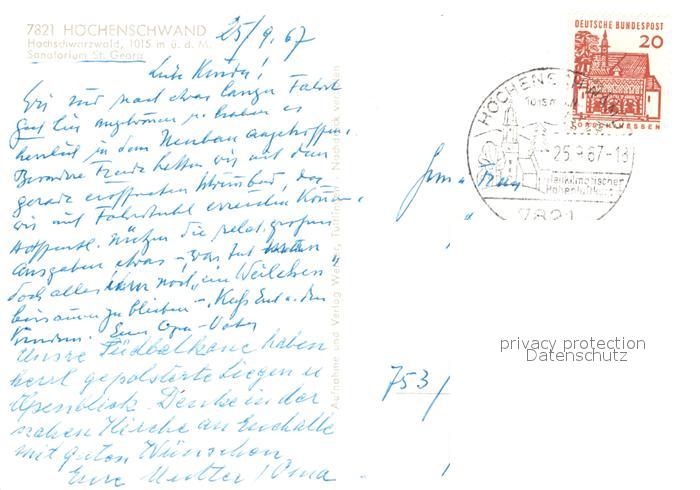 7821 HÖCHENSCHWAND
Hochschwarzwald, 1015 m ü. d. M.
Sanatorium St. Georg
25/9.67
Liebe Kinder!
Wir sind nach etwas langer Fahrt
gut hier angekommen u. haben es
herrlich in dem Neubau angetroffen.
Besondere Freude hatten wir mit dem
gerade eröffneten, das
wir mit Fahrstuhl erreichen können,
Hoffentl. nützen die relat. großen
Ausgaben etwas -, was tut
doch alles noch „ein Weilchen"
beisamen zu bleiben -. Kuß Euch u. den
Kindern. Euer Opa - Vater
Unsre Südbalkone haben
herrl gepolsterte Liegen u
Alpenblick. Denke in der
nahen Kirche an Euch alle
mit guten Wünschen
Eure Mutter / Oma
Aufnahme und Verlag Werner, Tuttlingen · Nachdruck verboten
DEUTSCHE BUNDESPOST
20
LORSCH/HESSEN
HÖCHENSCHWAND
1015 m
-25.9.67-18
Heilklimatischer
Höhenluftkurort
7821
753/
privacy protection
Datenschutz